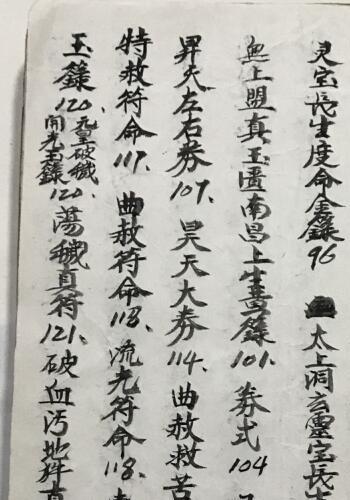 灵宝長生度命金籙96 太上洞玄靈宝長
無上盟真玉匱南昌上生籙101、券式104
昇天左右券107、昊天大券114、曲赦救苦
特赦符命117、曲赦符命118、流光符命118、
玉籙120、元皇破穢開光玉籙120、蕩穢真符121、破血污地